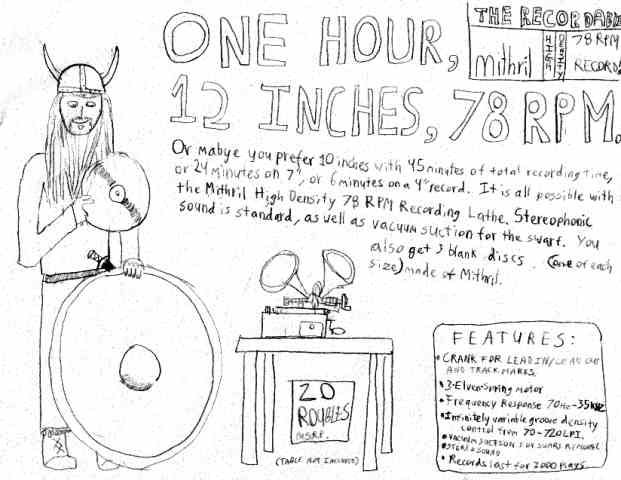 THE RECORDABLE
Mithril
HIGH
DENSITY
78 RPM
RECORD!
ONE HOUR,
12 INCHES, 78 RPM.
Or mabye you prefer 10 inches with 45 minutes of total recording time,
or 24 minutes on 7", or 6 minutes on a 4" record. It is all possible with
the Mithril High Density 78 RPM Recording Lathe. Stereophonic
sound is standard, as well as vacuum suction for the swarf. You
also get 3 blank discs. (one of each
size) made of Mithril.
20
ROUBLES
M.S.R.P.
(TABLE NOT INCLUDED)
FEATURES:
• CRANK FOR LEAD IN/LEAD OUT
AND TRACK MARKS.
• 3-Elven-Spring motor
• Frequency Response 70Hz-35kHz
• Infinitely variable groove density
control from 70-720 LPI.
• VACUUM SUCTION FOR SWARF REMOVAL
• STEREO SOUND
• Records last for 2000 plays